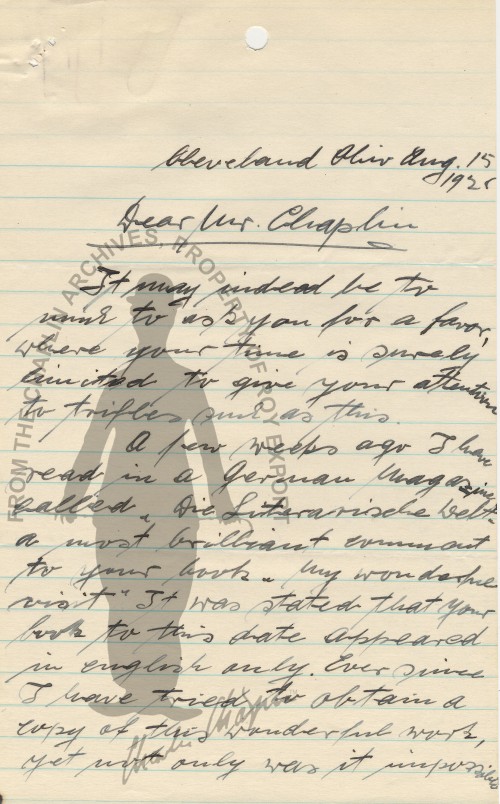 Cleveland Ohio Aug. 15
1925
Dear Mr. Chaplin
It may indead be to
much to ask you for a favor,
where your time is surely
limited to give your attention
to trifles such as this.
A few weeks ago I have
read in a German Magazine
called „Die Literarische Welt"
a most brilliant comment
to your book „My wonderful
visit" It was stated that your
book to this date appeared
in english only. Ever since
I have tried to obtain a
copy of this wonderful work,
yet not only was it impossible
FROM THE CHAPLIN ARCHIVES, PROPERTY OF ROY EXPORT
Charlie Chaplin